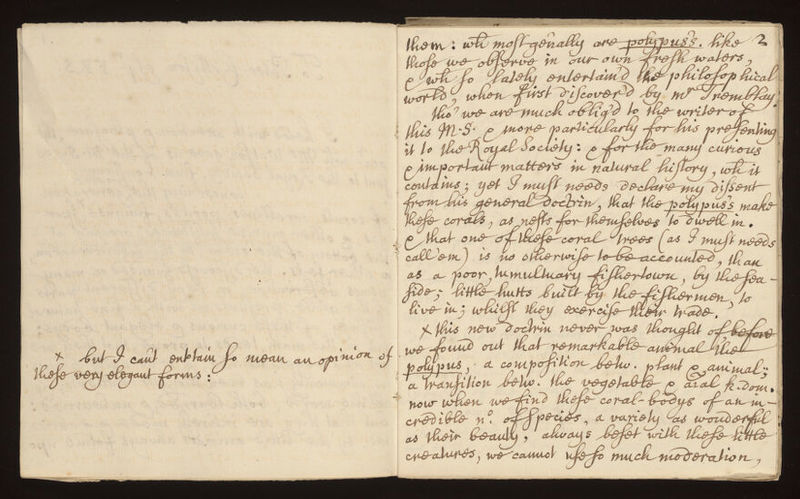 x but I can't entertain so mean an opinion of
these very elegant forms:
2
them: wh. most genally are polypus's. like
those we observe in our own fresh waters,
& wh. so lately entertain'd the philosophical
world, when first discover'd by mr Tremblay.
tho' we are much oblig'd to the writer of
this M.S. & more particularly for his presenting
it to the Royal Society: & for the many curious
& important matters in natural history, wh. it
contains; yet I must needs declare my dissent
from his general doctrin, that the polypus's make
these corals, as nests for themselves to dwell in.
& that one of these coral trees (as I must needs
call 'em) is no otherwise to be accounted, than
as a poor, tumultuary fishertown, by the sea-
side; little hutts built by the fishermen, to
live in; whilst they exercise their trade.
x this new doctrin never was thought of before
we found out that remarkable animal the
polypus, a composition betw. plant & animal;
a transition betw. the vegetable & aīal k.dom.
now when we find these coral-bodys of an in-
credible no. of species, a variety as wonderful
as their beauty, always beset with these little
creatures, we cannot use so much moderation,